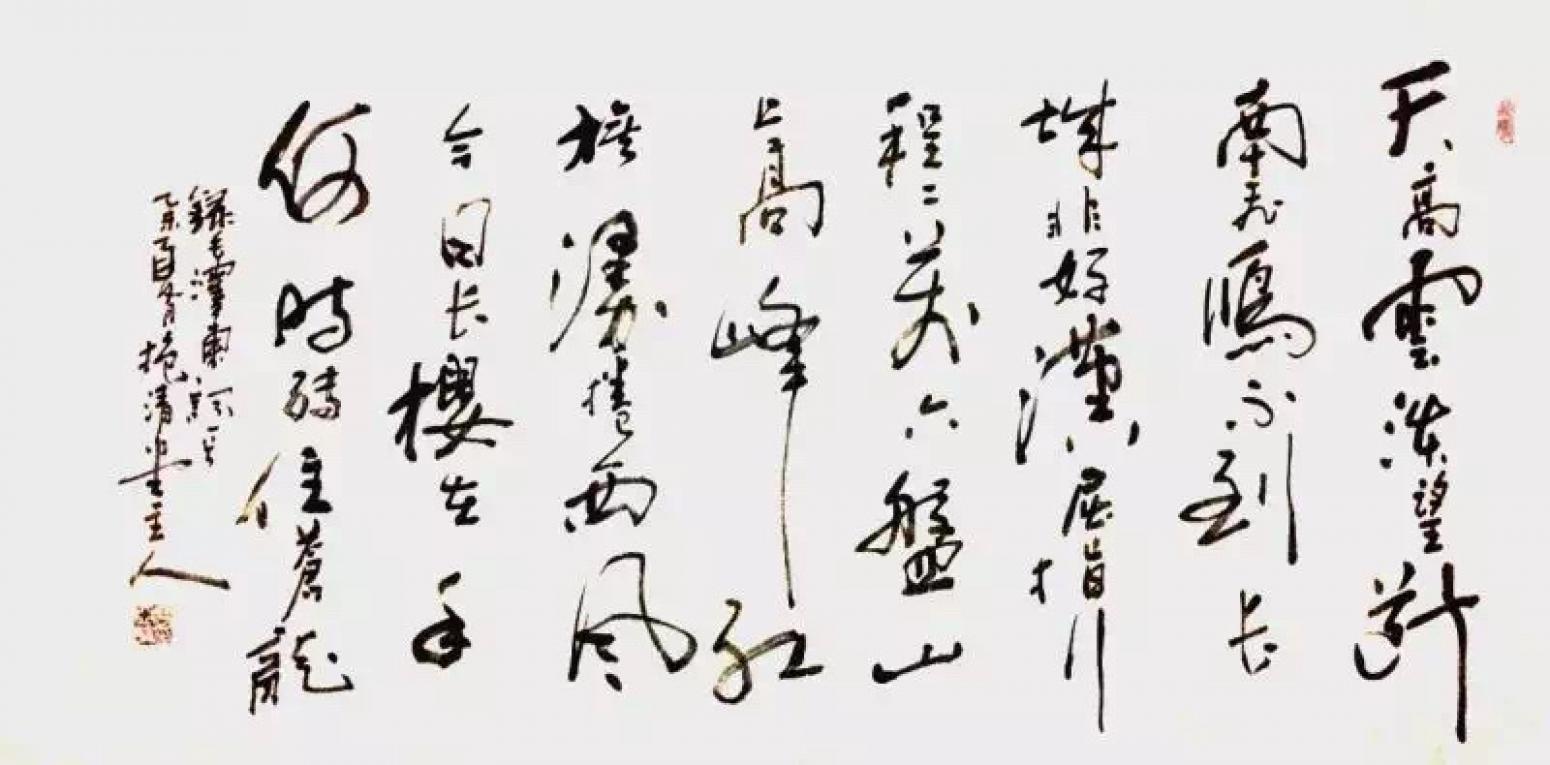 天高雲淡望斷
南飛鴈不到长
城非好漢屈指行
程二萬六盤山
上高峰紅
旗漫捲西風
今日长櫻在手
何時縛住蒼龍
錄毛澤東詞一首
抱清堂主人